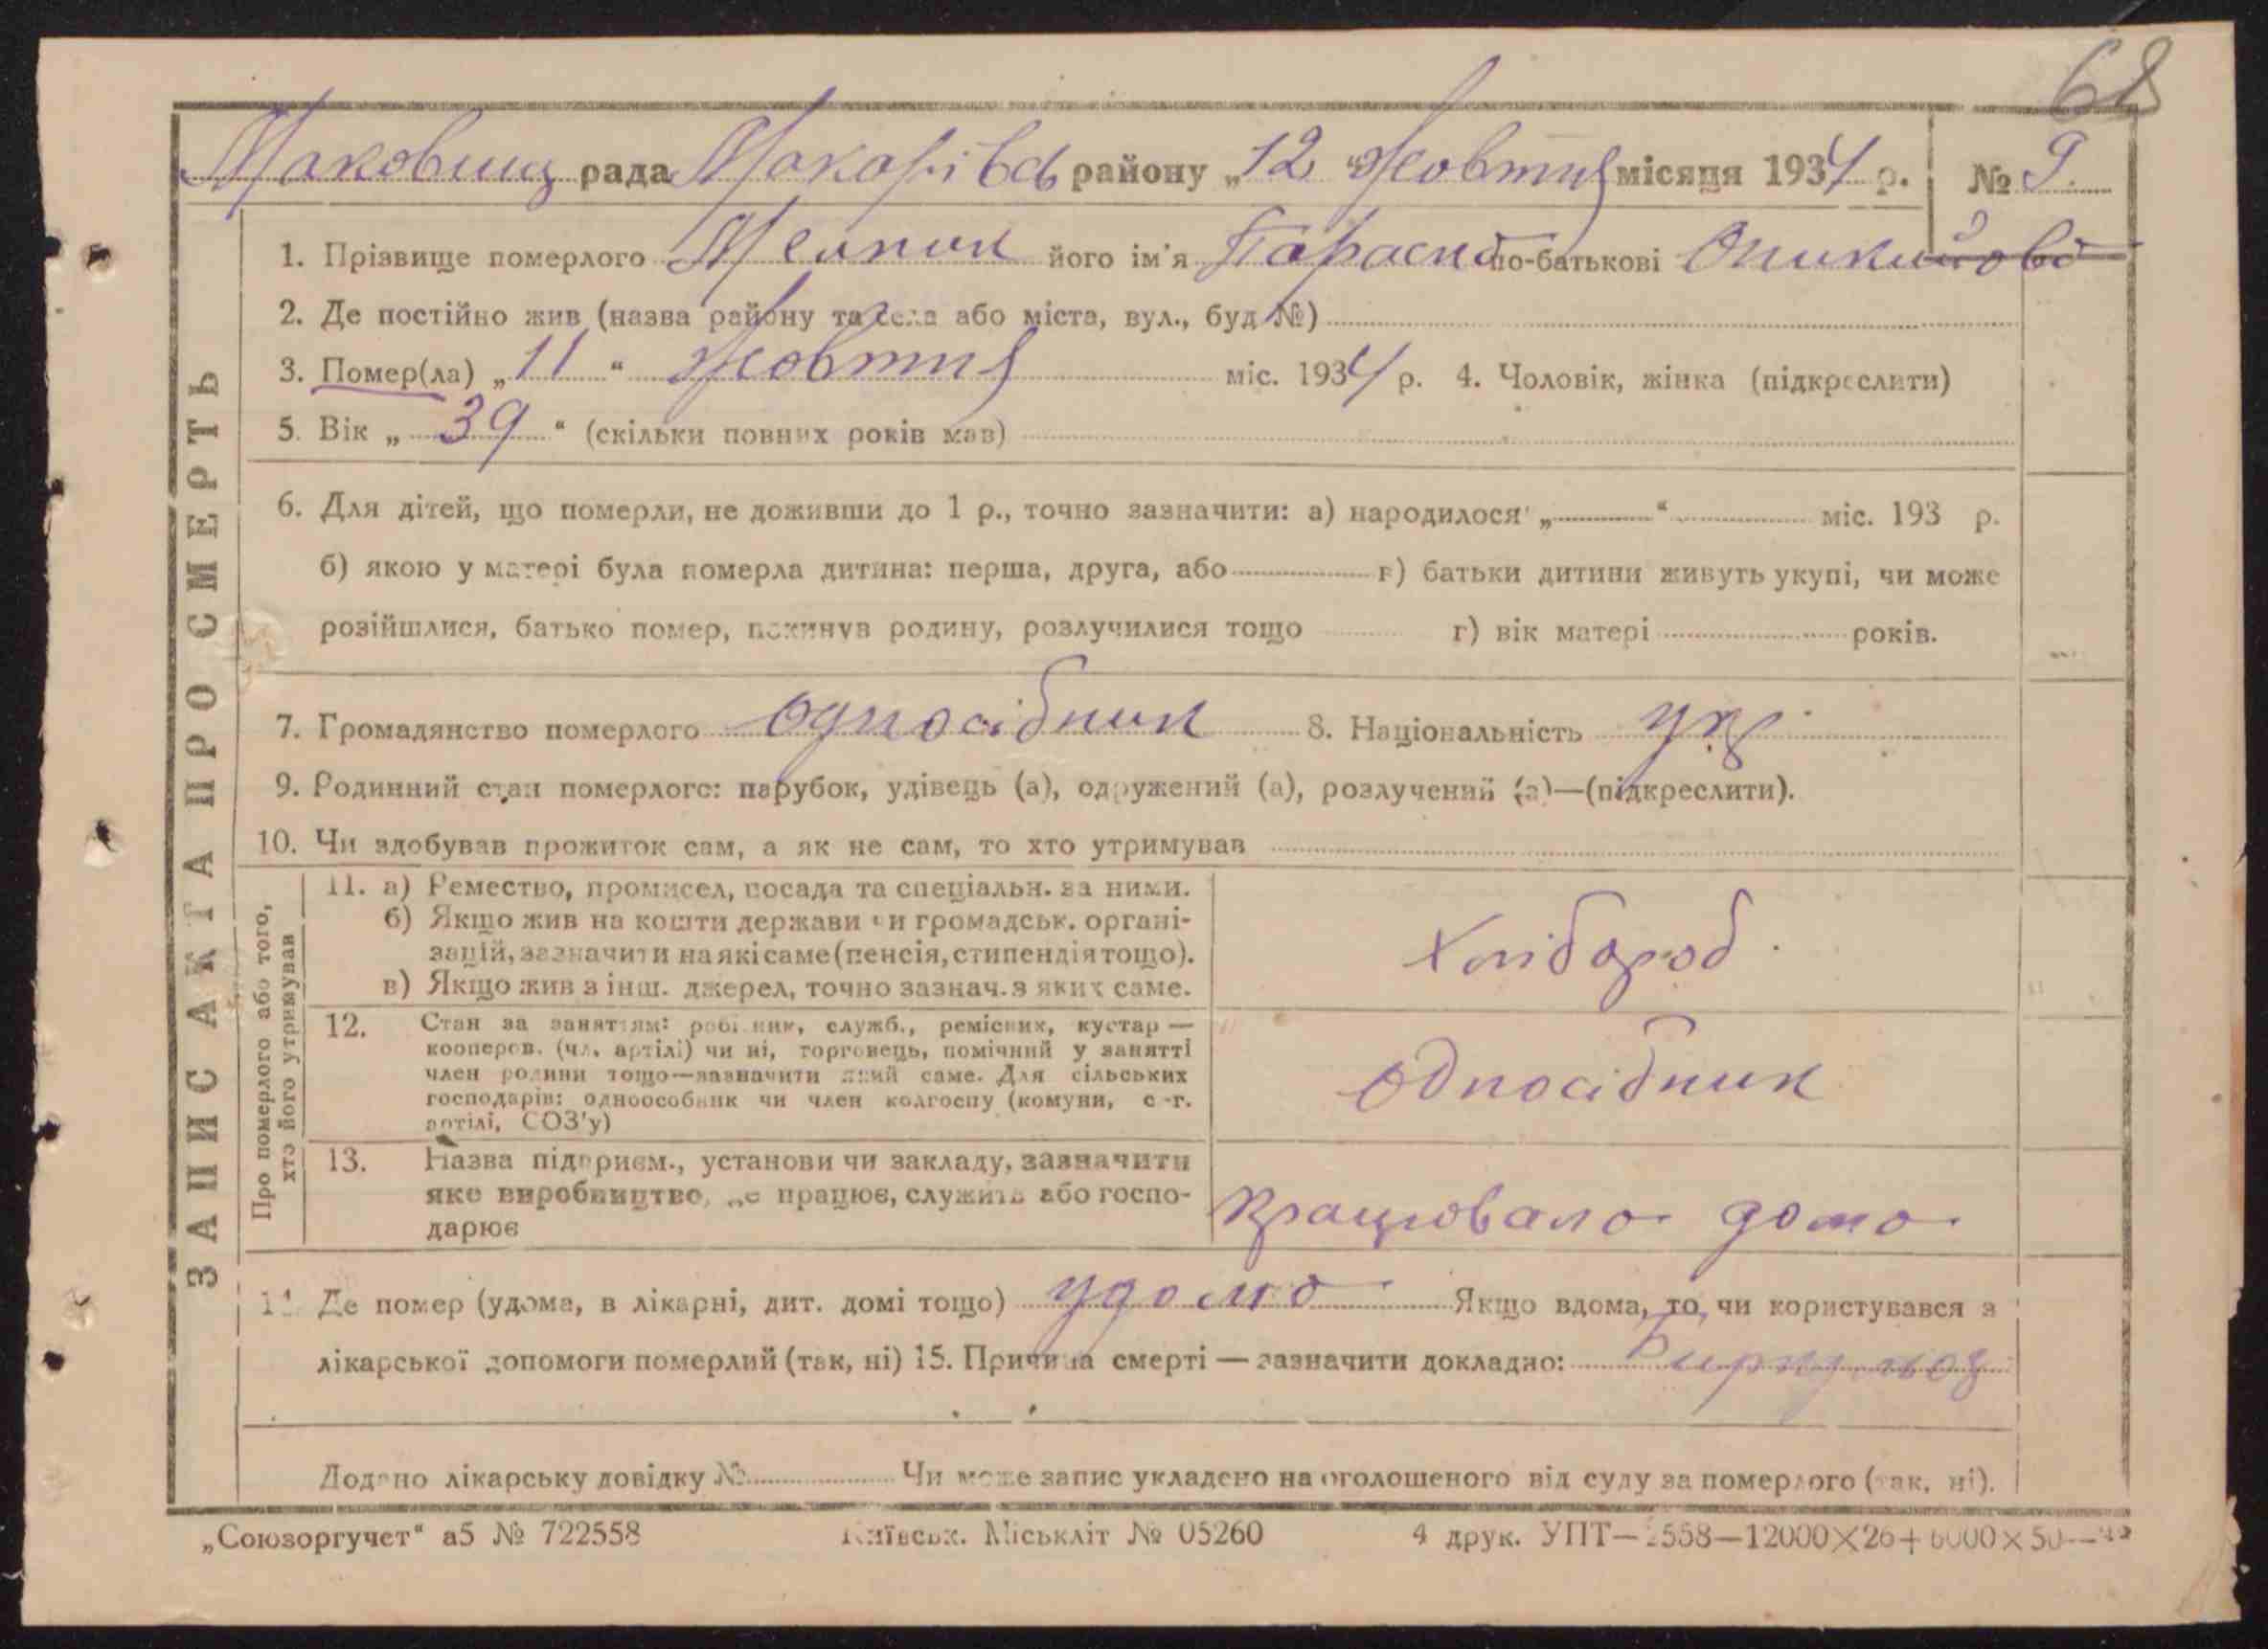 68
Маковищ рада Макарівсь району „12“ жовтня місяця 1934 р. № 9.
ЗАПИС АКТА ПРО СМЕРТЬ
1. Прізвище померлого Мельник його ім'я Параска по-батькові
2. Де постійно жив (назва району та села або міста, вул., буд №)
3. Помер(ла) „11“ жовтня міс. 1934 р. 4. Чоловік, жінка (підкреслити)
5. Вік „39“ (скільки повних років мав)
6. Для дітей, що померли, не доживши до 1 р., точно зазначити: а) народилося „ “ міс. 193 р.
б) якою у матері була померла дитина: перша, друга, або в) батьки дитини живуть укупі, чи може
розійшлися, батько помер, покинув родину, розлучилися тощо г) вік матері років.
7. Громадянство померлого односібник 8. Національність укр
9. Родинний стан померлого: парубок, удівець (а), одружений (а), розлучений (а)—(підкреслити).
10. Чи здобував прожиток сам, а як не сам, то хто утримував
Про померлого або того,
хто його утримував
11. а) Ремество, промисел, посада та спеціальн. за ними.
б) Якщо жив на кошти держави чи громадськ. органі-
зацій, зазначити на які саме (пенсія, стипендія тощо).
в) Якщо жив з інш. джерел, точно зазнач. з яких саме.
Хлібороб.
12. Стан за заняттям: робітник, служб., ремісник, кустар —
кооперов. (чл. артілі) чи ні, торговець, помічний у занятті
член родини тощо—зазначити який саме. Для сільських
господарів: одноособник чи член колгоспу (комуни, с.-г.
артілі, СОЗ'у)
односібник
13. Назва підприєм., установи чи закладу, зазначити
яке виробництво, де працює, служить або госпо-
дарює
працювала дома
14. Де помер (удома, в лікарні, дит. домі тощо) удома Якщо вдома, то чи користувався з
лікарської допомоги померлий (так, ні) 15. Причина смерті — зазначити докладно:
Додано лікарську довідку № Чи може запис укладено на оголошеного від суду за померлого (так, ні).
„Союзоргучет“ а5 № 722558 Київськ. Міськліт № 05260 4 друк. УПТ—2558—12000×26+6000×50